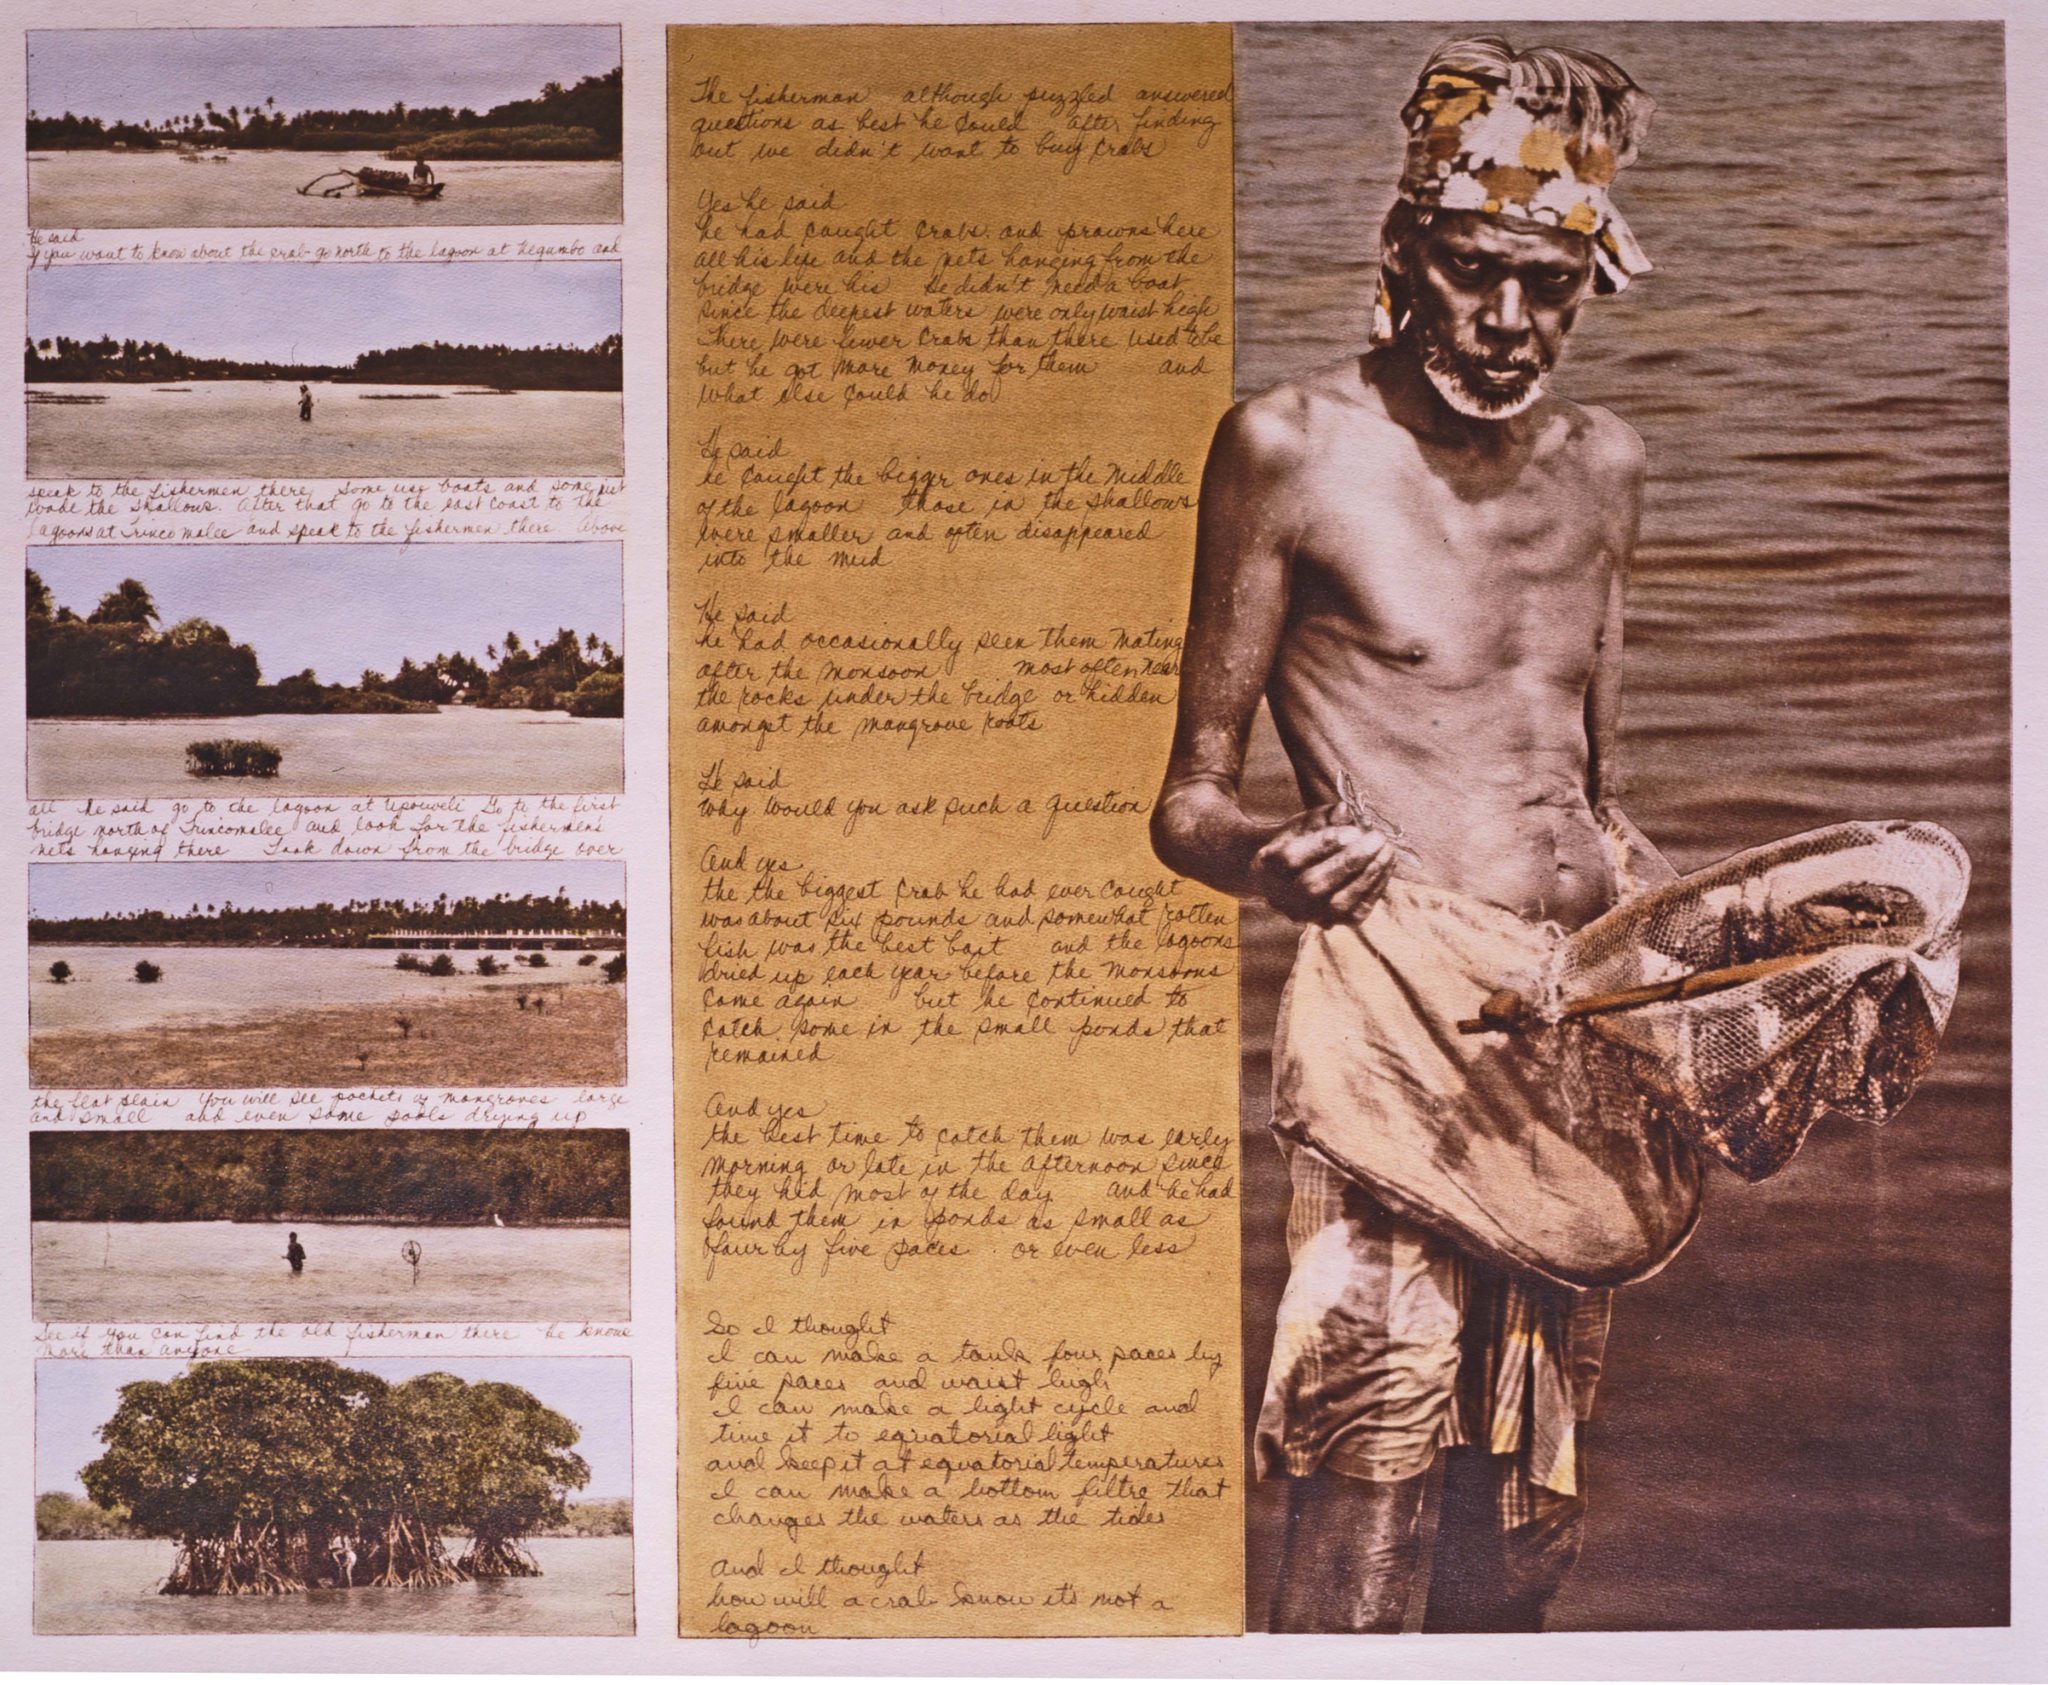 He said
If you want to know about the crab go north to the lagoon at Negumbo and
speak to the fishermen there some use boats and some just
wade the shallows. After that go to the east coast to the
lagoons at Trincomalee and speak to the fishermen there above
all he said go to the lagoon at Upouveli Go to the first
bridge north of Trincomalee and look for the fishermen's
nets hanging there Look down from the bridge over
the flat plain You will see pockets of mangroves large
and small and even some pools drying up
See if you can find the old fisherman there he knows
more than anyone
The fisherman although puzzled answered
questions as best he could after finding
out we didn't want to buy crabs
Yes he said
he had caught crabs and prawns here
all his life and the nets hanging from the
bridge were his He didn't need a boat
since the deepest waters were only waist high
There were fewer crabs than there used to be
but he got more money for them and
what else could he do
He said
he caught the bigger ones in the middle
of the lagoon those in the shallows
were smaller and often disappeared
into the mud
He said
he had occasionally seen them mating
after the monsoon most often near
the rocks under the bridge or hidden
amongst the mangrove roots
He said
why would you ask such a question
And yes
the the biggest crab he had ever caught
was about six pounds and somewhat rotten
fish was the best bait and the lagoons
dried up each year before the monsoons
came again but he continued to
catch some in the small ponds that
remained
And yes
the best time to catch them was early
morning or late in the afternoon since
they hid most of the day and he had
found them in ponds as small as
four by five paces. or even less
So I thought
I can make a tank four paces by
five paces and waist high
I can make a light cycle and
time it to equatorial light
and keep it at equatorial temperatures
I can make a bottom filtre that
changes the waters as the tides
And I thought
how will a crab know it's not a
lagoon